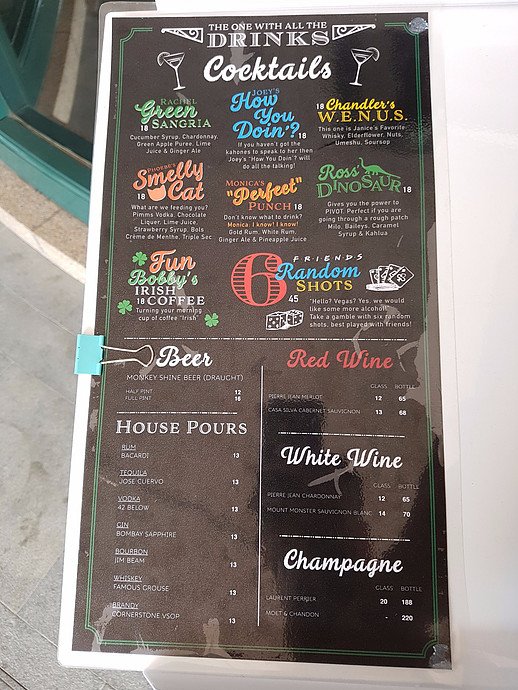 THE ONE WITH ALL THE
DRINKS
Cocktails
RACHEL
Green
18 SANGRIA
Cucumber Syrup, Chardonnay,
Green Apple Puree, Lime
Juice & Ginger Ale
JOEY'S
How
You
18 Doin'?
If you haven't got the
kahones to speak to her then
Joey's "How You Doin'? will
do all the talking!
18 Chandler's
W.E.N.U.S.
This one is Janice's Favorite
Whisky, Elderflower, Nuts,
Umeshu, Soursop
PHOEBE'S
Smelly
18 Cat
What are we feeding you?
Pimms Vodka, Chocolate
Liquor, Lime Juice,
Strawberry Syrup, Bols
Crème de Menthe, Triple Sec
MONICA'S
"Perfect"
PUNCH 18
Don't know what to drink?
Monica. I know! I know!
Gold Rum, White Rum,
Ginger Ale & Pineapple Juice
Ross'
DINOSAUR 18
Gives you the power to
PIVOT. Perfect if you are
going through a rough patch
Milo, Baileys, Caramel
Syrup & Kahlua
Fun
Bobby's
IRISH
18 COFFEE
Turning your morning
cup of coffee "Irish"
6 FRIENDS
Random
SHOTS
45
"Hello? Vegas? Yes, we would
like some more alcohol!"
Take a gamble with six random
shots, best played with friends!
Beer
MONKEY SHINE BEER (DRAUGHT)
HALF PINT 12
FULL PINT 18
HOUSE POURS
RUM
BACARDI 13
TEQUILA
JOSE CUERVO 13
VODKA
42 BELOW 13
GIN
BOMBAY SAPPHIRE 13
BOURBON
JIM BEAM 13
WHISKEY
FAMOUS GROUSE 13
BRANDY
CORNERSTONE VSOP 13
Red Wine
GLASS BOTTLE
PIERRE JEAN MERLOT 12 65
CASA SILVA CABERNET SAUVIGNON 13 68
White Wine
GLASS BOTTLE
PIERRE JEAN CHARDONNAY 12 65
MOUNT MONSTER SAUVIGNON BLANC 14 70
Champagne
GLASS BOTTLE
LAURENT PERRIER 20 188
MOET & CHANDON - 220